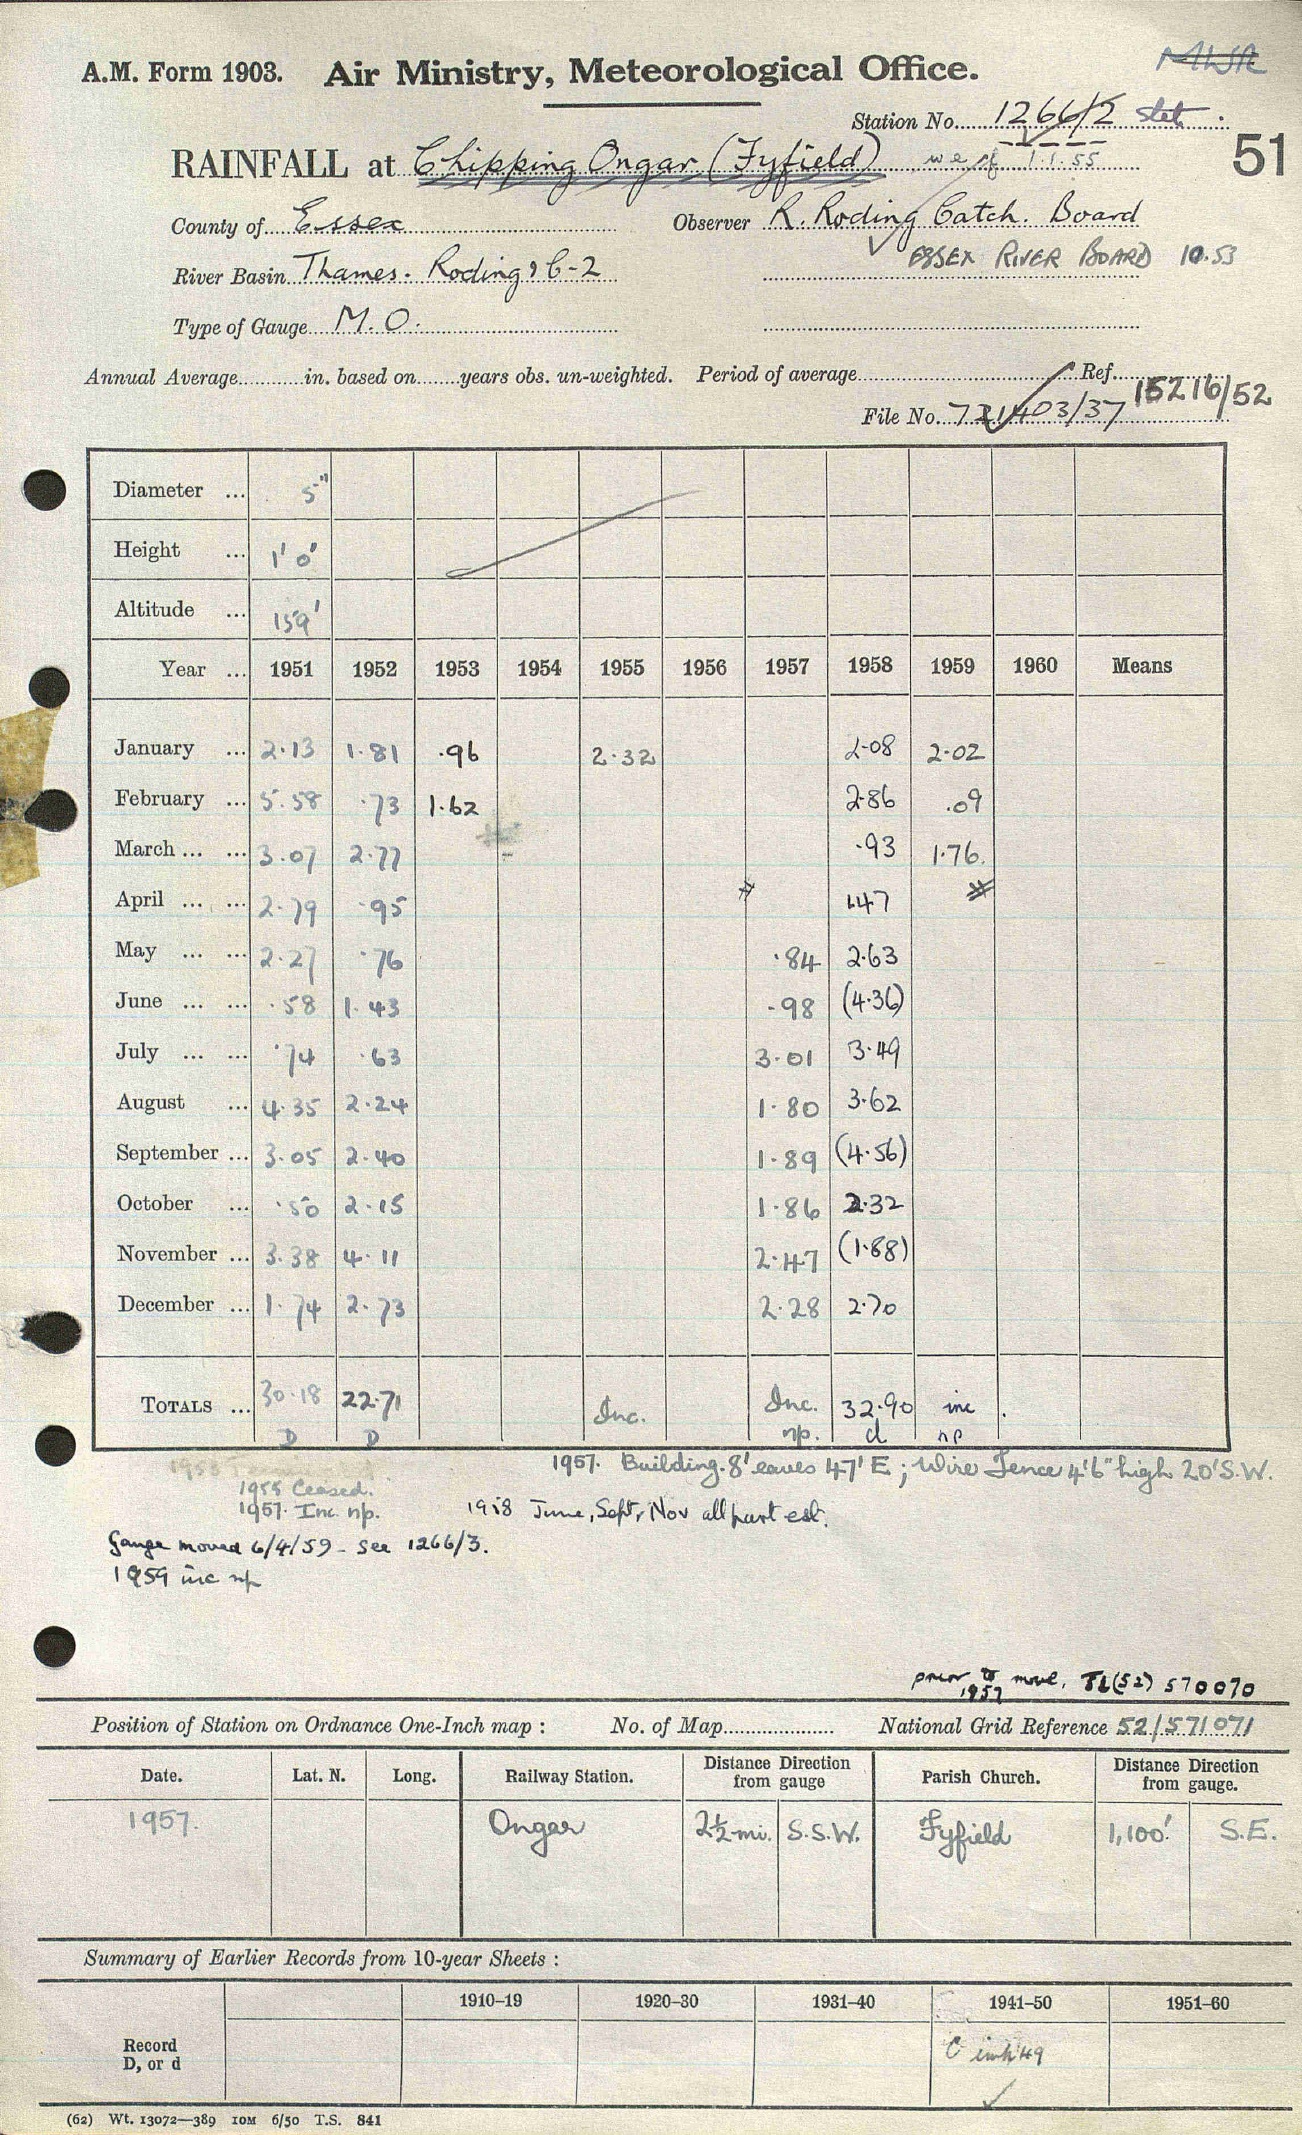 A.M. Form 1903. Air Ministry, Meteorological Office. MWR
Station No. 1266/2 stet.
51
RAINFALL at Chipping Ongar (Fyfield) w.e.f 1.1.55
County of Essex Observer R. Roding Catch. Board
ESSEX RIVER BOARD 10.53
River Basin Thames. Roding & C-2
Type of Gauge M.O.
Annual Average in. based on years obs. un-weighted. Period of average Ref. 15216/52
File No. 721403/37
Diameter ... 5"
Height ... 1' 0"
Altitude ... 159'
Year ... 1951 1952 1953 1954 1955 1956 1957 1958 1959 1960 Means
January ... 2.13 1.81 .96 2.32 2.08 2.02
February ... 5.58 .73 1.62 2.86 .09
March ... ... 3.07 2.77 .93 1.76.
April ... ... 2.79 .95 1.47
May ... ... 2.27 .76 .84 2.63
June ... ... .58 1.43 .98 (4.36)
July ... ... .74 .63 3.01 3.49
August ... 4.35 2.24 1.80 3.62
September ... 3.05 2.40 1.89 (4.56)
October ... .50 2.15 1.86 2.32
November ... 3.38 4.11 2.47 (1.88)
December ... 1.74 2.73 2.28 2.70
TOTALS ... 30.18 22.71 Inc. Inc. 32.90 inc
D D np. d np
1957. Building. 8' eaves 47' E; Wire Fence 4'6" high 20' S.W.
1955 Ceased.
1957. Inc. np. 1958 June, Sept, Nov all part est.
Gauge moved 6/4/59 - see 1266/3.
1959 inc np
prior to 1957 move, TL(52) 570070
Position of Station on Ordnance One-Inch map : No. of Map National Grid Reference 52/571071
Date. Lat. N. Long. Railway Station. Distance Direction from gauge Parish Church. Distance Direction from gauge.
1957. Ongar 2½ mi. S.S.W. Fyfield 1,100' S.E.
Summary of Earlier Records from 10-year Sheets :
1910–19 1920–30 1931–40 1941–50 1951–60
Record
D, or d
(62) Wt. 13072—389 10M 6/50 T.S. 841